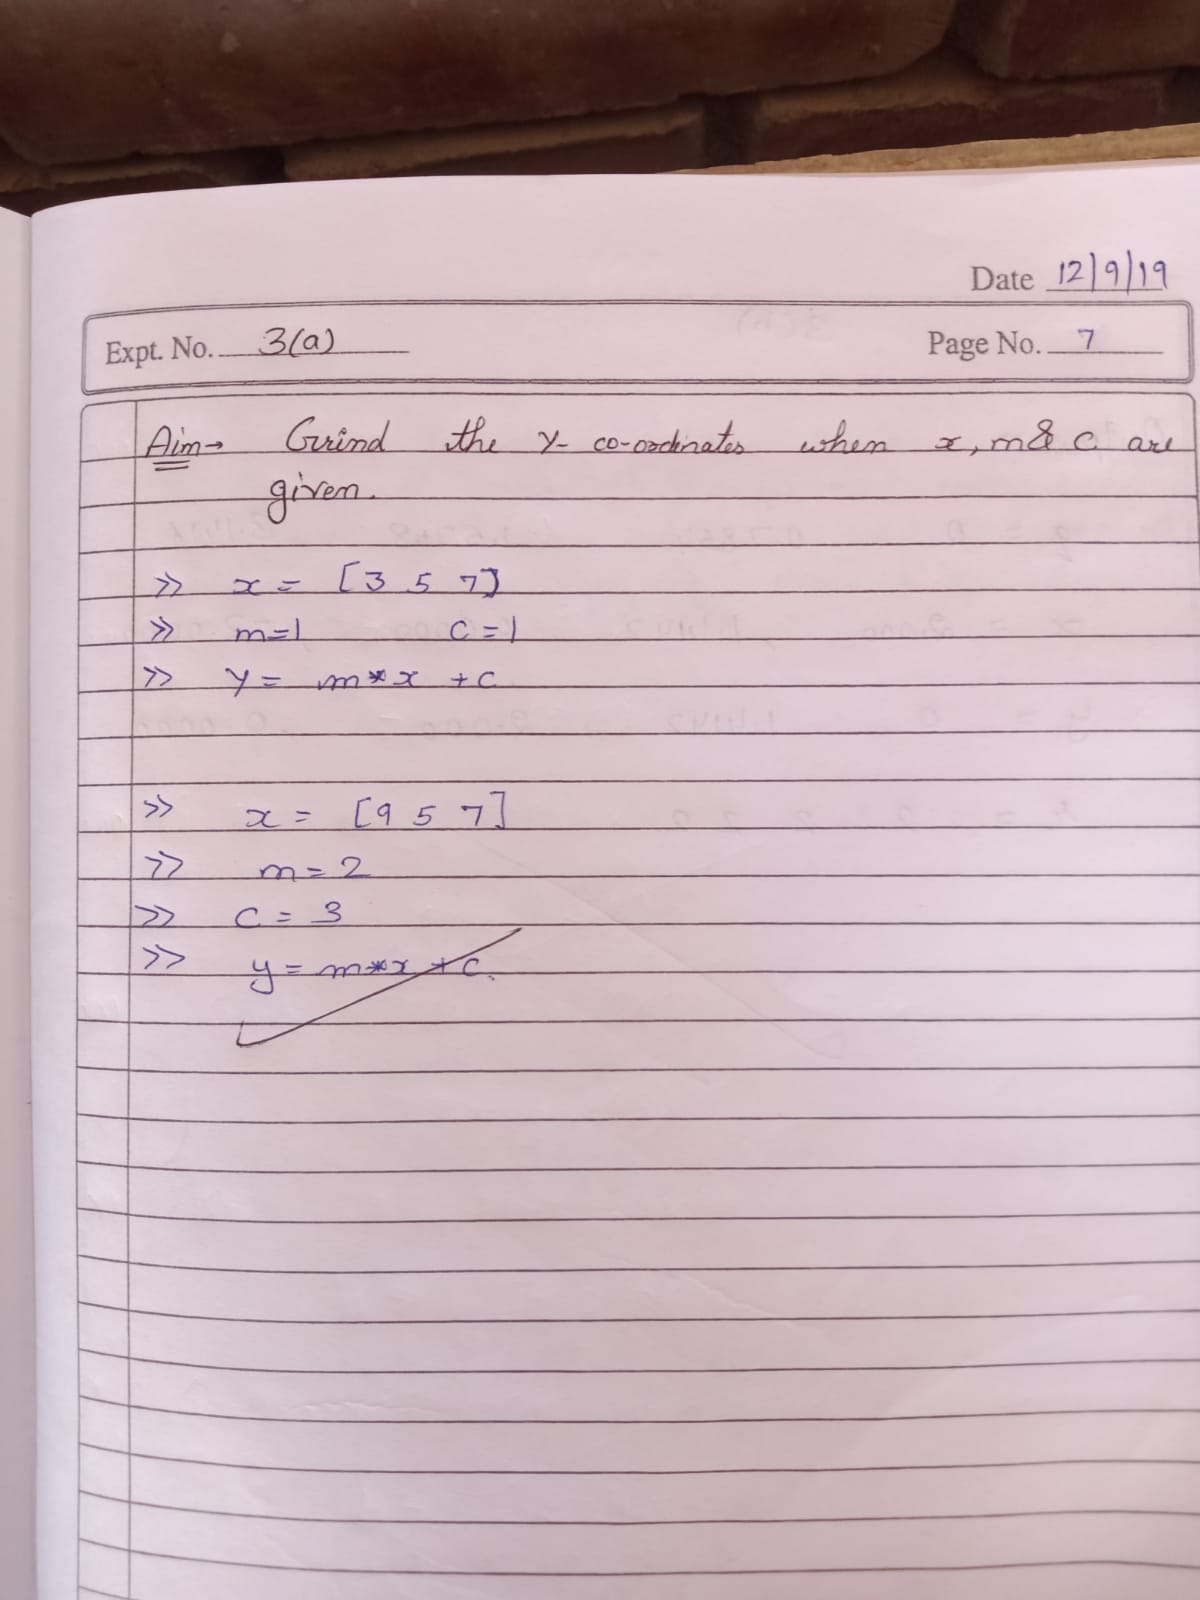 Date 12/9/19
Expt. No. 3(a) Page No. 7
Aim→ Grind the Y- co-ordinates when x, m & c are
given.
>> x = [3 5 7]
>> m=1 c=1
>> Y= m*x +c
>> x = [9 5 7]
>> m=2
>> c= 3
>> y= m*x +c.